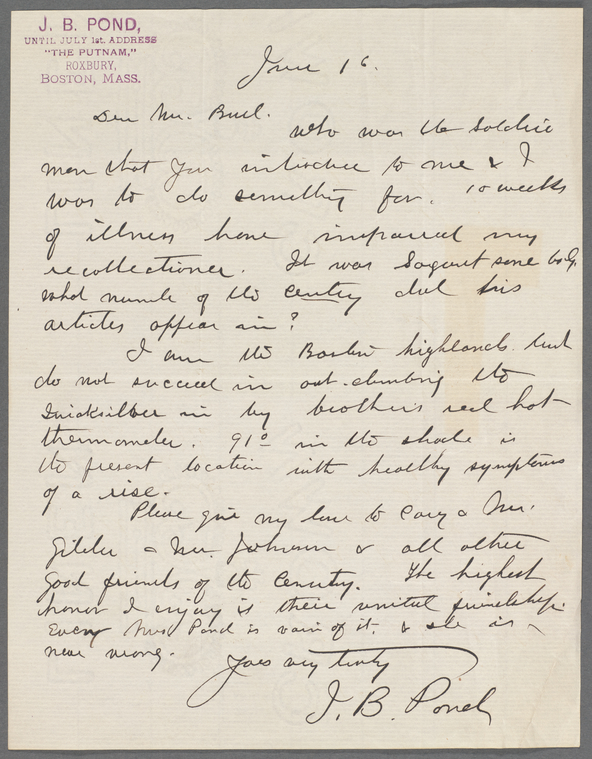 J. B. POND,
UNTIL JULY 1st. ADDRESS
"THE PUTNAM,"
ROXBURY,
BOSTON, MASS.
June 16.
Dear Mr. Buel.
who was the soldier
man that you introduce to me & I
was to do something for. 10 weeks
of illness have impaired my
recollectioner. It was Sargent some body.
what number of the century did his
articles appear in?
I am the Boston highlands but
do not succeed in out-climbing the
Quicksilver in my brother's red hot
thermometer. 91° in the shade is
the present location with healthy symptoms
of a rise.
Please give my love to Cary & Mr.
Gilder & Mr. Johnson & all other
good friends of the Century. The highest
honor I enjoy is their united friendship.
Every Mrs Pond is vain of it, & she is
never wrong.
Yours very truly
J. B. Pond